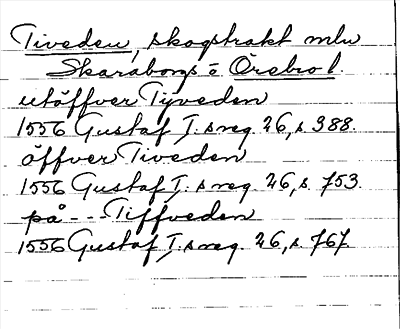 Tiveden, skogstrakt mln
Skaraborgs o Örebro l.
utöffver Tyveden
1556 Gustaf I:s reg. 26, s. 388.
öffver Tiveden
1556 Gustaf I:s reg. 26, s. 753.
på - - - Tiffveden
1556 Gustaf I:s reg. 26, s. 767.